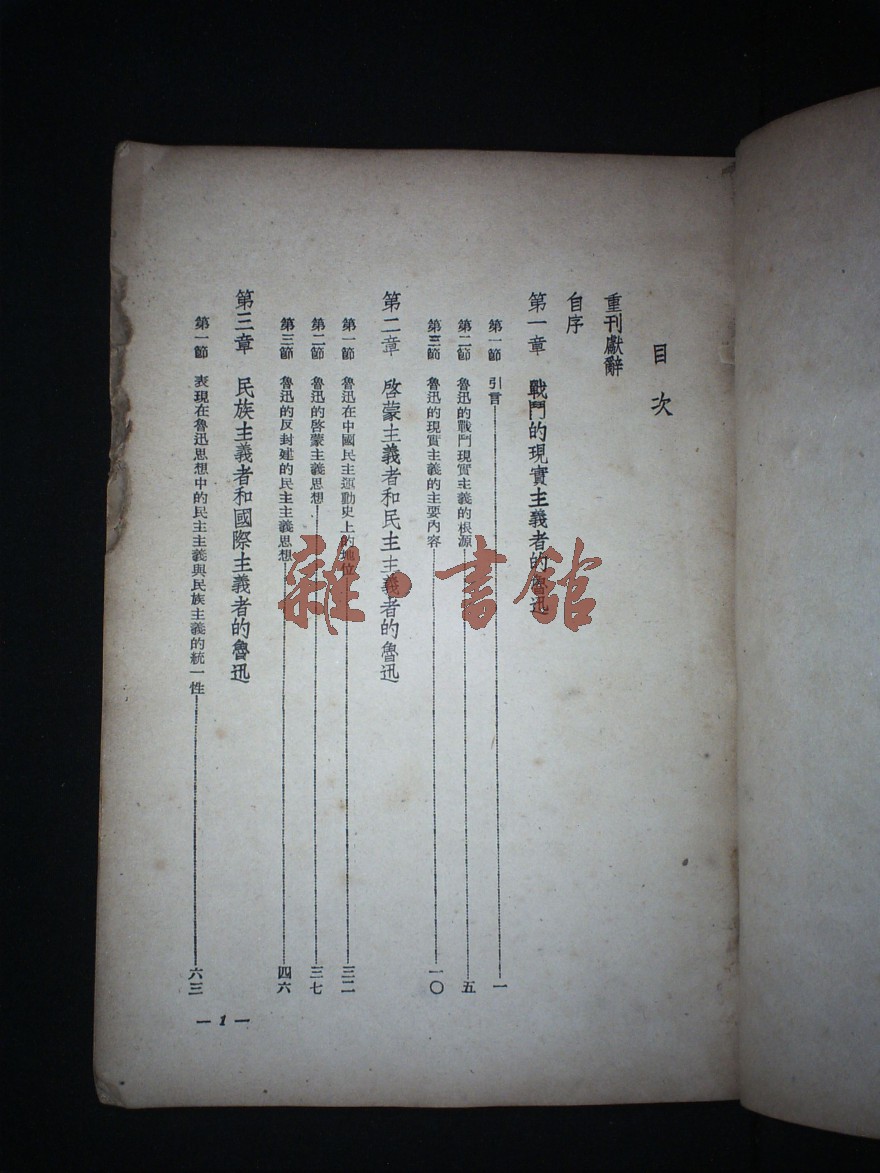 目次
重刊獻辭
自序
第一章 戰鬥的現實主義者的魯迅
第一節 引言 一
第二節 魯迅的戰鬥現實主義的根源 五
第三節 魯迅的現實主義的主要內容 一〇
第二章 啓蒙主義者和民主主義者的魯迅
第一節 魯迅在中國民主運動史上的地位 三二
第二節 魯迅的啓蒙主義思想 三七
第三節 魯迅的反封建的民主主義思想 四六
第三章 民族主義者和國際主義者的魯迅
第一節 表現在魯迅思想中的民主主義與民族主義的統一性 六三
— 1 —
雜·書館